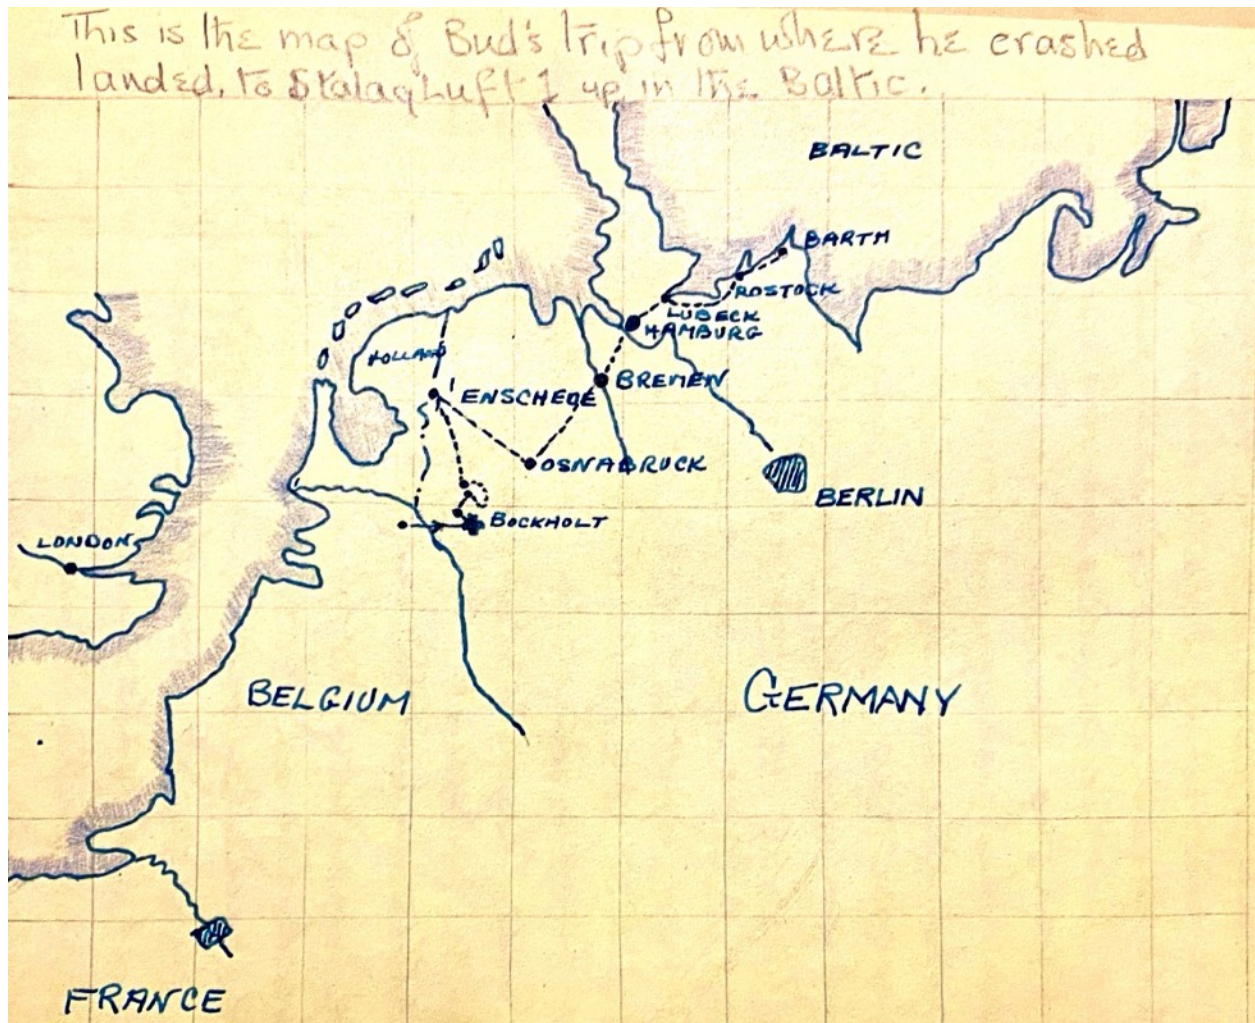 This is the map of Bud's trip from where he crashed
landed, to Stalag Luft 1 up in the Baltic.
BALTIC
BARTH
ROSTOCK
LUBECK
HAMBURG
HOLLAND
BREMEN
ENSCHEDE
OSNABRUCK
BERLIN
BOCKHOLT
LONDON
BELGIUM
GERMANY
FRANCE